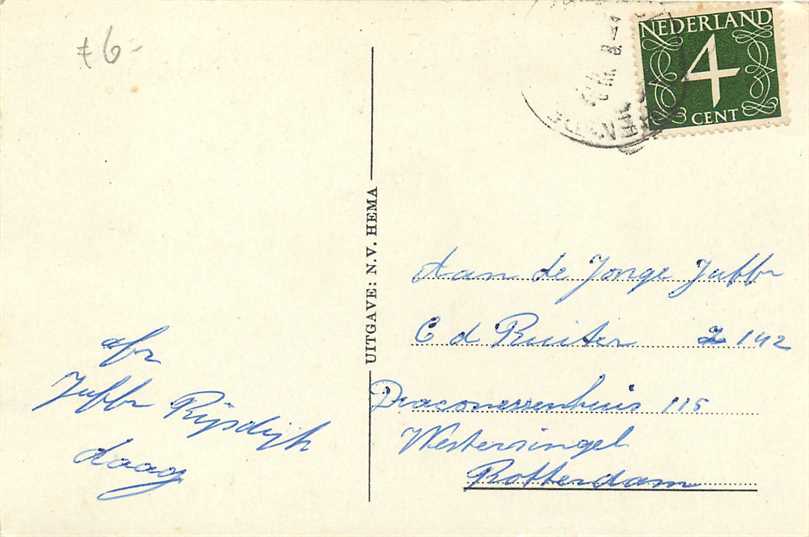 £6-
NEDERLAND
4
CENT
UITGAVE: N.V. HEMA
Aan de Jonge Juffr
C d Ruiter 2 142
Diaconessenhuis 115
Westersingel
Rotterdam
afz
Juffr Rijsdijk
daag